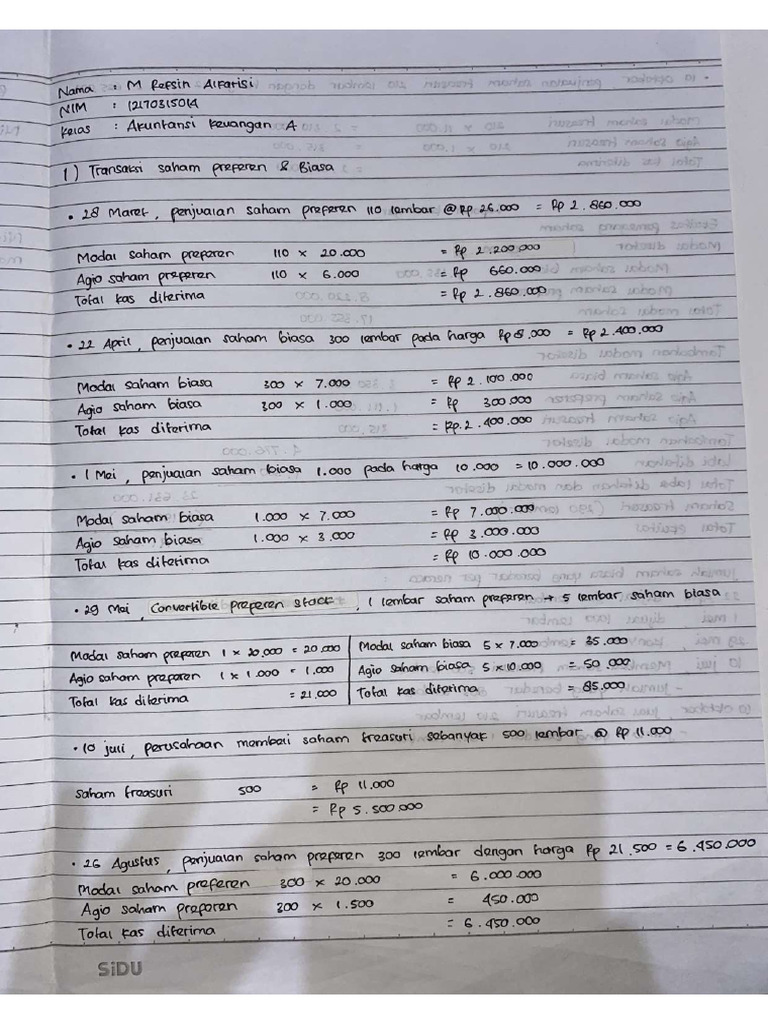 Nama : M Refsin Alfarisi
NIM : 1217031501A
Kelas : Akuntansi Keuangan A
1) Transaksi saham preferen & Biasa
• 28 Maret, penjualan saham preferen 110 lembar @ Rp 26.000 = Rp 2.860.000
Modal saham preferen 110 × 20.000 = Rp 2.200.000
Agio saham preferen 110 × 6.000 = Rp 660.000
Total kas diterima = Rp 2.860.000
• 22 April, penjualan saham biasa 300 lembar pada harga Rp 8.000 = Rp 2.400.000
Modal saham biasa 300 × 7.000 = Rp 2.100.000
Agio saham biasa 300 × 1.000 = Rp 300.000
Total kas diterima = Rp.2.400.000
• 1 Mei, penjualan saham biasa 1.000 pada harga 10.000 = 10.000.000
Modal saham biasa 1.000 × 7.000 = Rp 7.000.000
Agio saham biasa 1.000 × 3.000 = Rp 3.000.000
Total kas diterima = Rp 10.000.000
• 29 Mei, Convertible preferen stock, 1 lembar saham preferen → 5 lembar saham biasa
Modal saham preferen 1 × 20.000 = 20.000 Modal saham biasa 5 × 7.000 = 35.000
Agio saham preferen 1 × 1.000 = 1.000 Agio saham biasa 5 × 10.000 = 50.000
Total kas diterima = 21.000 Total kas diterima = 85.000
• 10 juli, perusahaan membeli saham treasuri sebanyak 500 lembar @ Rp 11.000
saham treasuri 500 = Rp 11.000
= Rp 5.500.000
• 26 Agustus, penjualan saham preferen 300 lembar dengan harga Rp 21.500 = 6.450.000
Modal saham preferen 300 × 20.000 = 6.000.000
Agio saham preferen 300 × 1.500 = 450.000
Total kas diterima = 6.450.000
SiDU